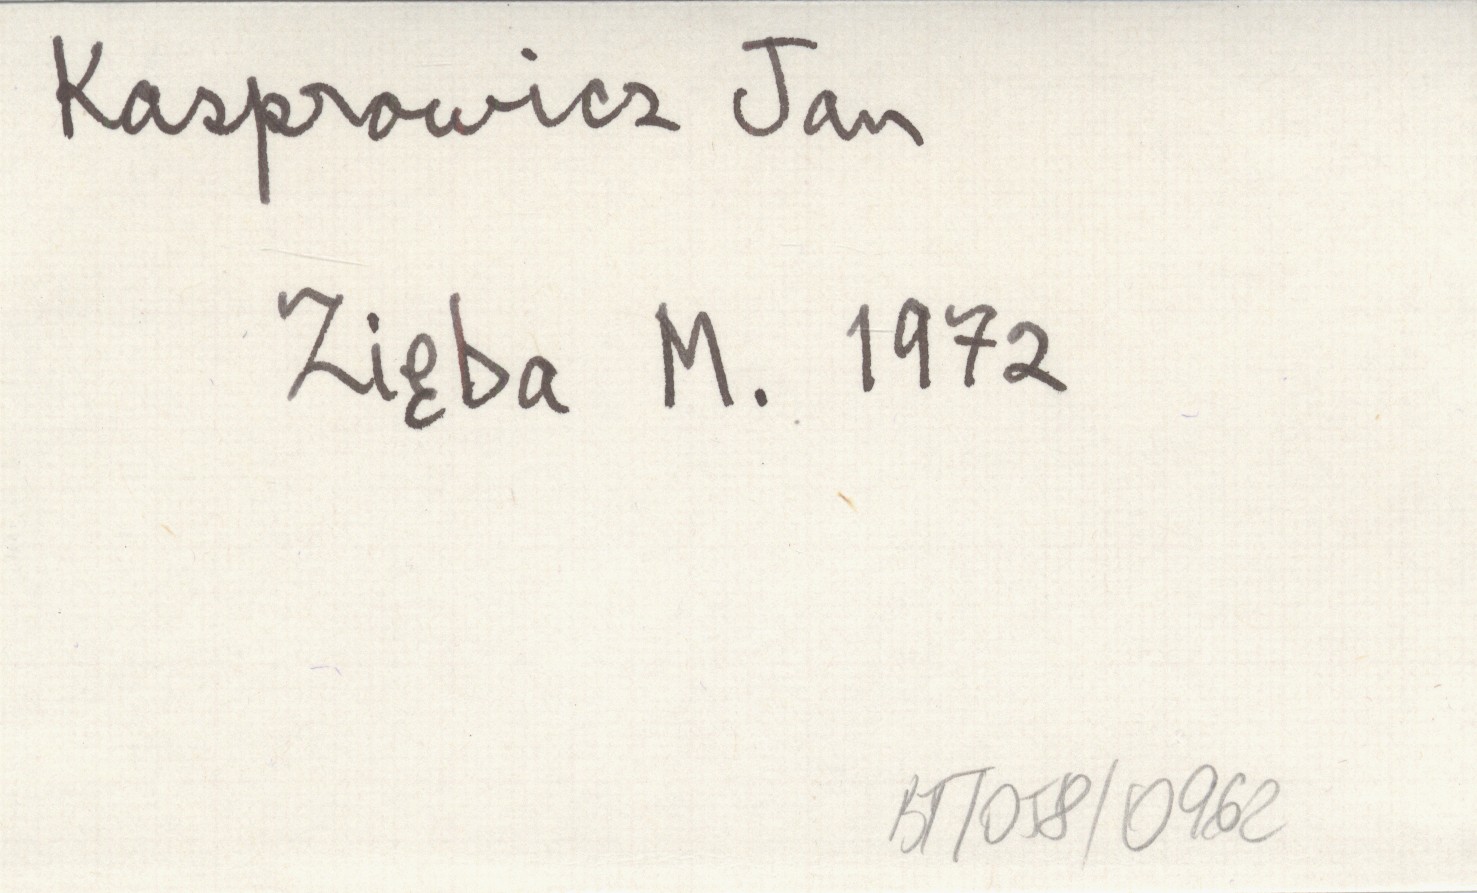 Kasprowicz Jan
Zięba M. 1972
BT/058/0962